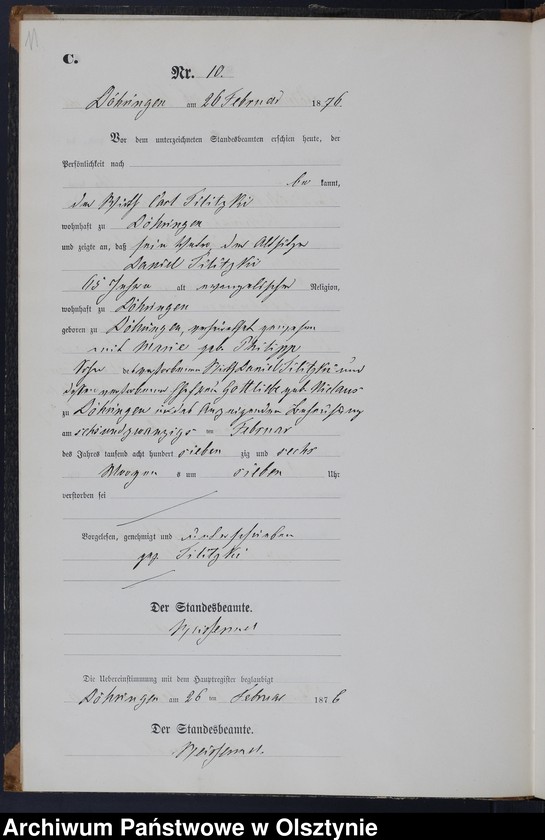 11
C.
Nr. 10.
Döhringen am 26 Februar 1876.
Vor dem unterzeichneten Standesbeamten erschien heute, der
Persönlichkeit nach
be kannt,
der Wirth Carl Tilitzki
wohnhaft zu Döhringen
und zeigte an, daß sein Vater, der Altsitzer
Daniel Tilitzki
65 Jahre alt evangelischer Religion,
wohnhaft zu Döhringen
geboren zu Döhringen, verheirathet gewesen
mit Marie geb. Philipp
Sohn des verstorbenen Wirth Daniel Tilitzki und
dessen verstorbenen Ehefrau Gottliebe geb. Niclaus
zu Döhringen in des Anzeigenden Behausung
am sechsundzwanzigs ten Februar
des Jahres tausend acht hundert sieben zig und sechs
Morgens um sieben Uhr
verstorben sei
Vorgelesen, genehmigt und unterschrieben
gez. Tilitzki
Der Standesbeamte.
Die Uebereinstimmung mit dem Hauptregister beglaubigt
Döhringen am 26 ten Februar 1876
Der Standesbeamte.
Archiwum Państwowe w Olsztynie